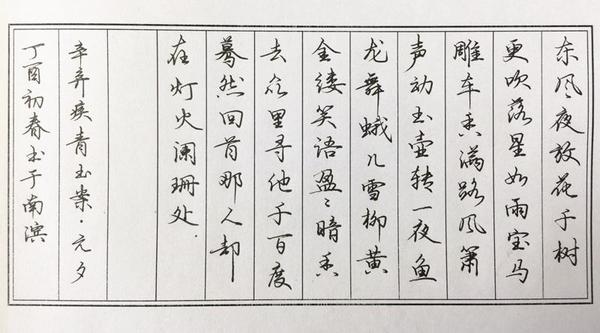 东风夜放花千树
更吹落星如雨宝马
雕车香满路风箫
声动玉壶转一夜鱼
龙舞蛾儿雪柳黄
金缕笑语盈盈暗香
去众里寻他千百度
蓦然回首那人却
在灯火阑珊处
辛弃疾青玉案·元夕
丁酉初春书于南滨